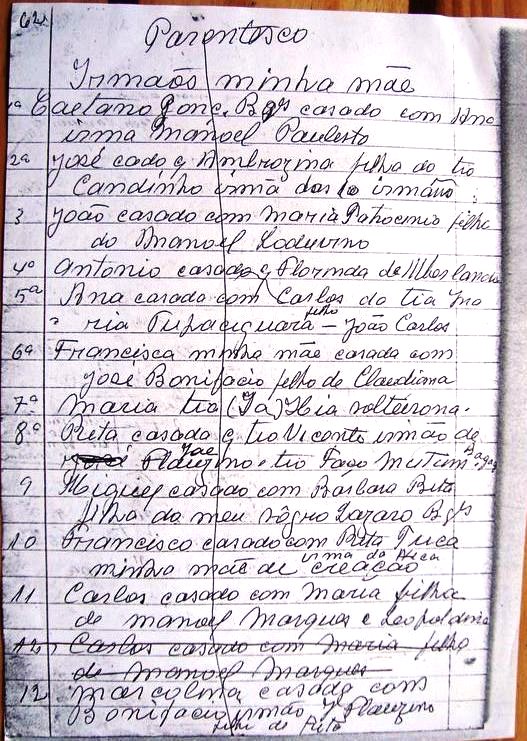 62.
Parentesco
Irmaõs minha mãe
1º Caetano Gonc. Bgs casado com Ana
irmã Manoel Paulesto
2º José cado c Ambrozina filha do tio
Candinho irmã dos 10 irmãno
3 João casado com Maria Patrocinio filha
do Manoel Loduvino
4º Antonio casado c Florinda de
5ª Ana casada com Carlos da tia Ma
ria Tupaciguara - filho João Carlos
6ª Francisca minha mãe casada com
José Bonifacio filho de Claudiana
7ª Maria tia (Ia) Ilia solteirona.
8ª Rita casada c tio Vicente irmão de
José Plauzino e tio Fago Mutum Bagag
9 Miguel casado com Bárbara Beta
filha do meu sôgro Lazaro Bgs
10 Francisco casado com Rita Tuca
minha mãe de creação irmã da
11 Carlos casado com Maria filha
de manoel Marques e Leopoldina
12, Carlos casado com Maria filha
de Manoel Marques
12 Marcolina casada com
Bonifacio irmão Je Plauzino
filhi de Rita